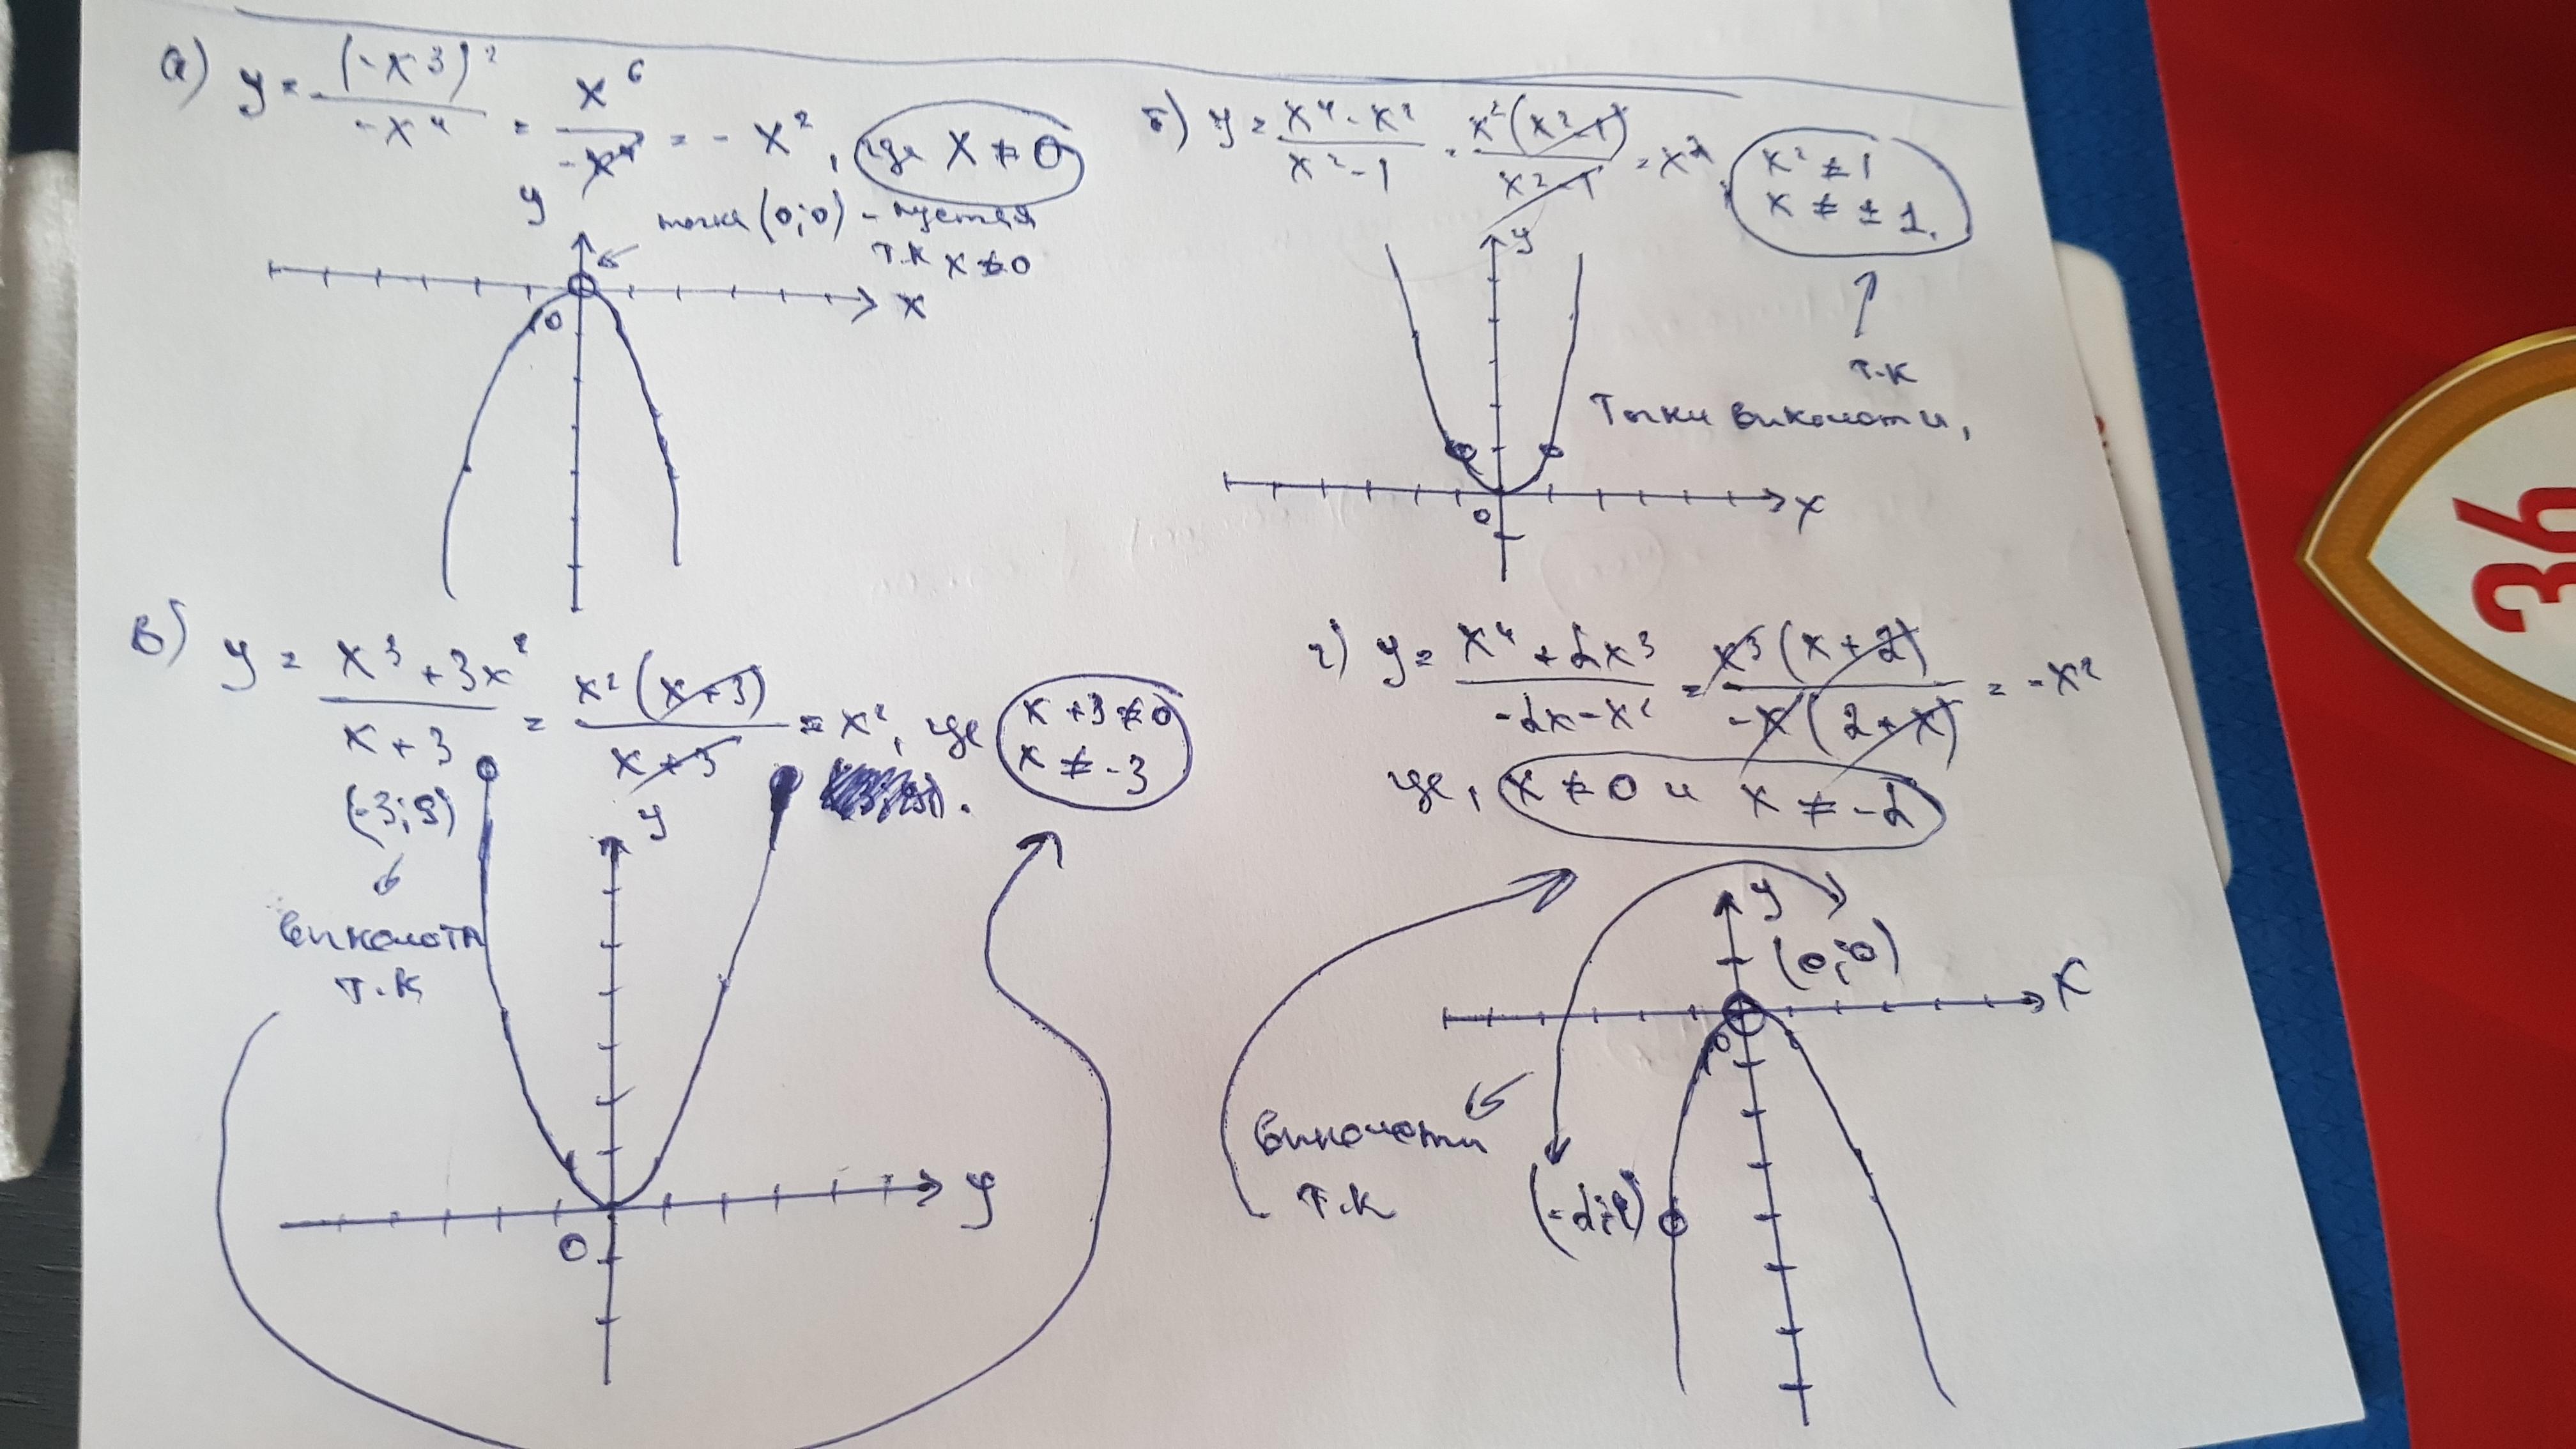 а) y = (-x³)² / -x⁴ = x⁶ / -x⁴ = - x², где x ≠ 0
y
точка (0;0) - пустая
т.к x ≠ 0
x
0
б) y = x⁴ - x² / x² - 1 = x²(x²-1) / x²-1 = x², x² ≠ 1
x ≠ ± 1.
y
т.к
Точки виколоти,
x
0
в) y = x³ + 3x² / x + 3 = x²(x+3) / x+3 = x², где x + 3 ≠ 0
x ≠ -3
(-3;9)
y
виколота
т.к
y
0
г) y = x⁴ + 2x³ / -2x - x² = x³(x+2) / -x(2+x) = -x²
где, x ≠ 0 и x ≠ -2
y
(0;0)
x
0
виколоти
т.к
36